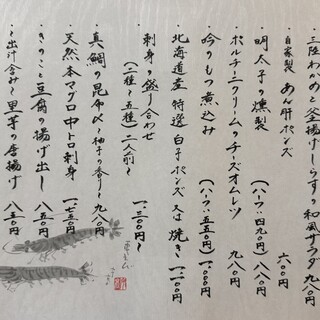 ・三陸わかめと釜揚げしらすの和風サラダ 九八〇円
・自家製 あん肝ポンズ 六〇〇円
・明太子の燻製 (ハーフ 四九〇円) 八八〇円
・ポルチーニクリームのチーズオムレツ 九八〇円
・吟のもつ煮込み (ハーフ 五五〇円) 九八〇円
・北海道産 特選白子ポンズ 又は 焼き 一一〇〇円
・刺身の盛り合わせ (三種〜五種) 二人前〜 一三〇〇円
・真鯛の昆布〆〜柚子の香り〜 九八〇円
・天然本マグロ中トロ刺身 一七五〇円
・きのこと豆腐の揚げ出し 八五〇円
・〜出汁含み〜里芋の唐揚げ 八五〇円